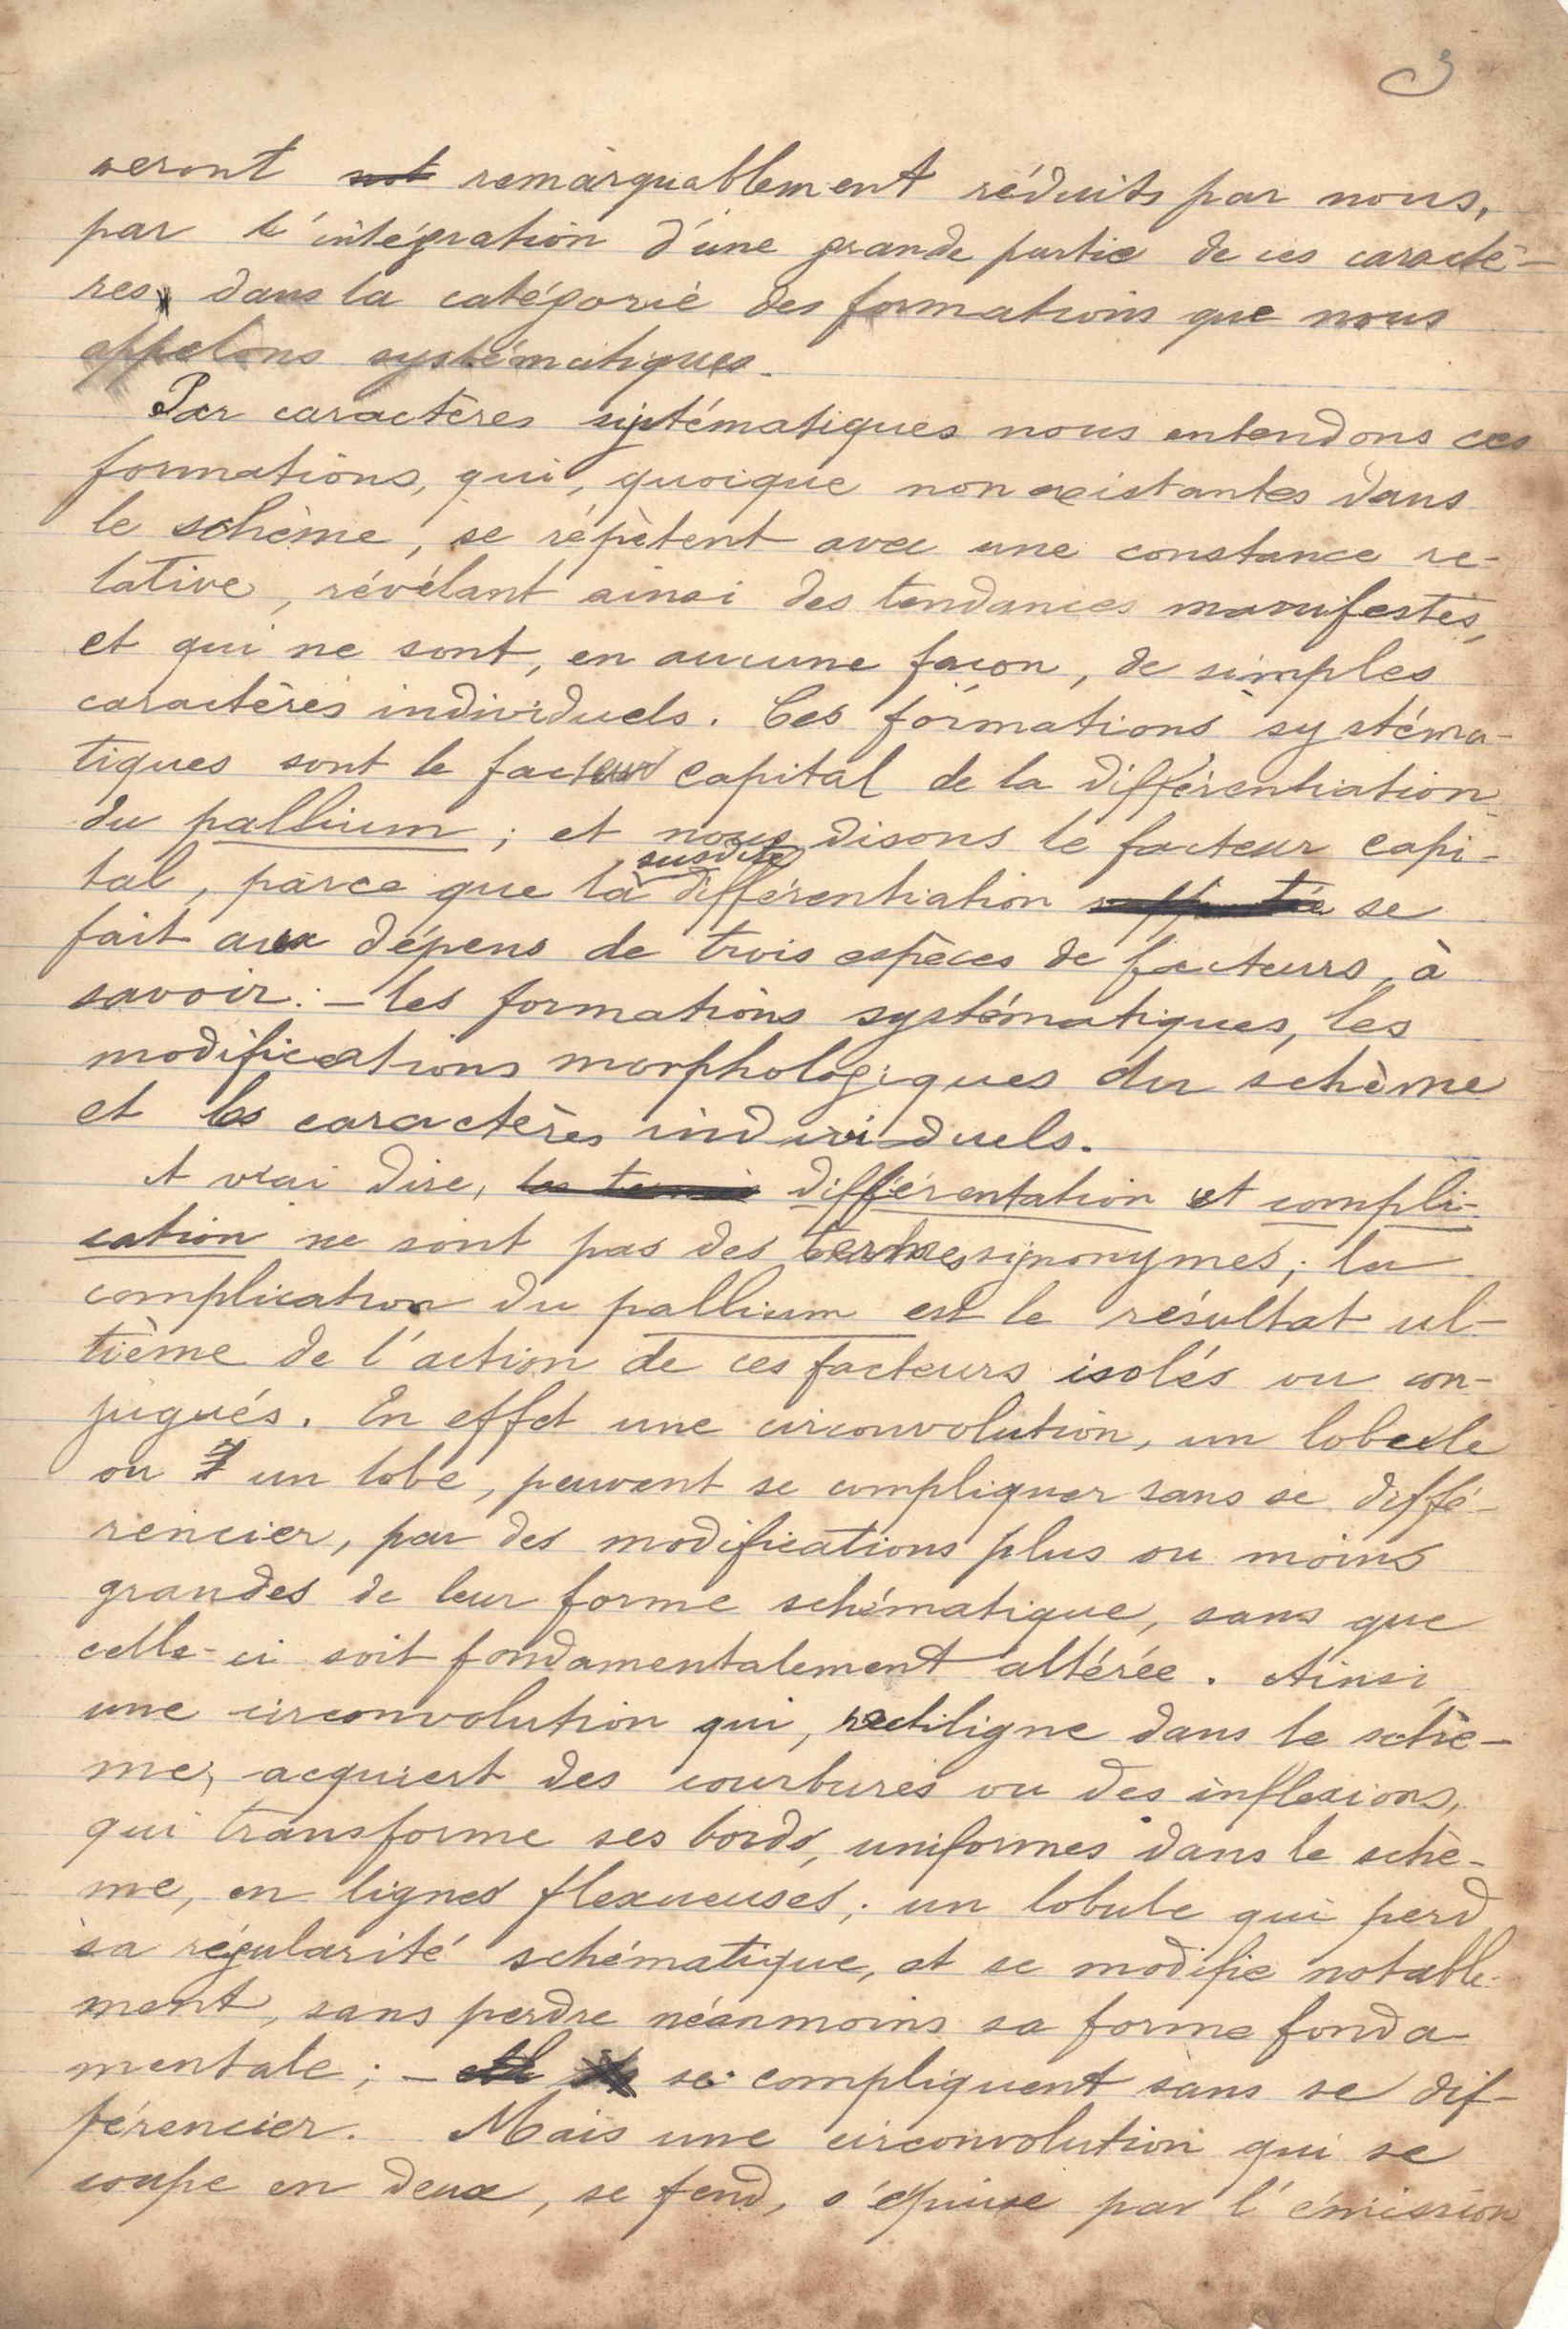 3
seront remarquablement réduits par nous,
par l'intégration d'une grande partie de ces caractè-
res dans la catégorie des formations que nous
appelons systématiques.
Par caractères systématiques nous entendons ces
formations, qui, quoique non existantes dans
le schème, se répètent avec une constance re-
lative, révélant ainsi des tendances manifestes,
et qui ne sont, en aucune façon, de simples
caractères individuels. Ces formations systéma-
tiques sont le facteur capital de la différentiation
du pallium ; et nous disons le facteur capi-
tal, parce que la susdite différentiation se
fait aux dépens de trois espèces de facteurs, à
savoir : – les formations systématiques, les
modifications morphologiques du schème
et les caractères individuels.
A vrai dire, différentation et compli-
cation ne sont pas des termes signonymes ; la
complication du pallium est le résultat ul-
tième de l'action de ces facteurs isolés ou con-
jugués. En effet une circonvolution, un lobule
ou un lobe, peuvent se compliquer sans se diffé-
rencier, par des modifications plus ou moins
grandes de leur forme schématique, sans que
celle-ci soit fondamentalement altérée. Ainsi
une circonvolution qui, rectiligne dans le schè-
me, acquiert des courbures ou des inflexions,
qui transforme ses bords, uniformes dans le schè-
me, en lignes flexueuses ; un lobule qui perd
sa régularité schématique, et se modifie notable-
ment, sans perdre néanmoins sa forme fonda-
mentale ; – se compliquent sans se dif-
férencier. Mais une circonvolution qui se
coupe en deux, se fend, s'épuise par l'émission